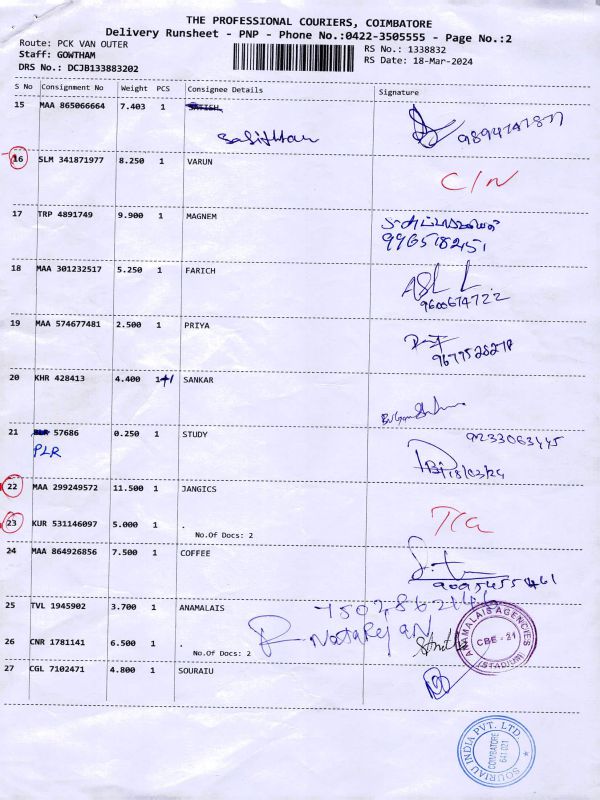 THE PROFESSIONAL COURIERS, COIMBATORE
Delivery Runsheet - PNP - Phone No.:0422-3505555 - Page No.:2
Route: PCK VAN OUTER
Staff: GOWTHAM
DRS No.: DCJB133883202
RS No.: 1338832
RS Date: 18-Mar-2024
S No Consignment No Weight PCS Consignee Details Signature
15 MAA 865066664 7.403 1
16 SLM 341871977 8.250 1 VARUN
C/N
17 TRP 4891749 9.900 1 MAGNEM
9965182451
18 MAA 301232517 5.250 1 FARICH
9600674722
19 MAA 574677481 2.500 1 PRIYA
20 KHR 428413 4.400 1+1 SANKAR
21 57686 0.250 1 STUDY 9233063445
PLR
18/03/24
22 MAA 299249572 11.500 1 JANGICS
23 KUR 531146097 5.000 1 .
No.Of Docs: 2
24 MAA 864926856 7.500 1 COFFEE
25 TVL 1945902 3.700 1 ANAMALAIS
26 CNR 1781141 6.500 1 .
No.Of Docs: 2
ANAMALAIS AGENCIES
CBE - 21
(STADIUM)
27 CGL 7102471 4.800 1 SOURAIU
SOURIAU INDIA PVT. LTD.
COIMBATORE
641 021